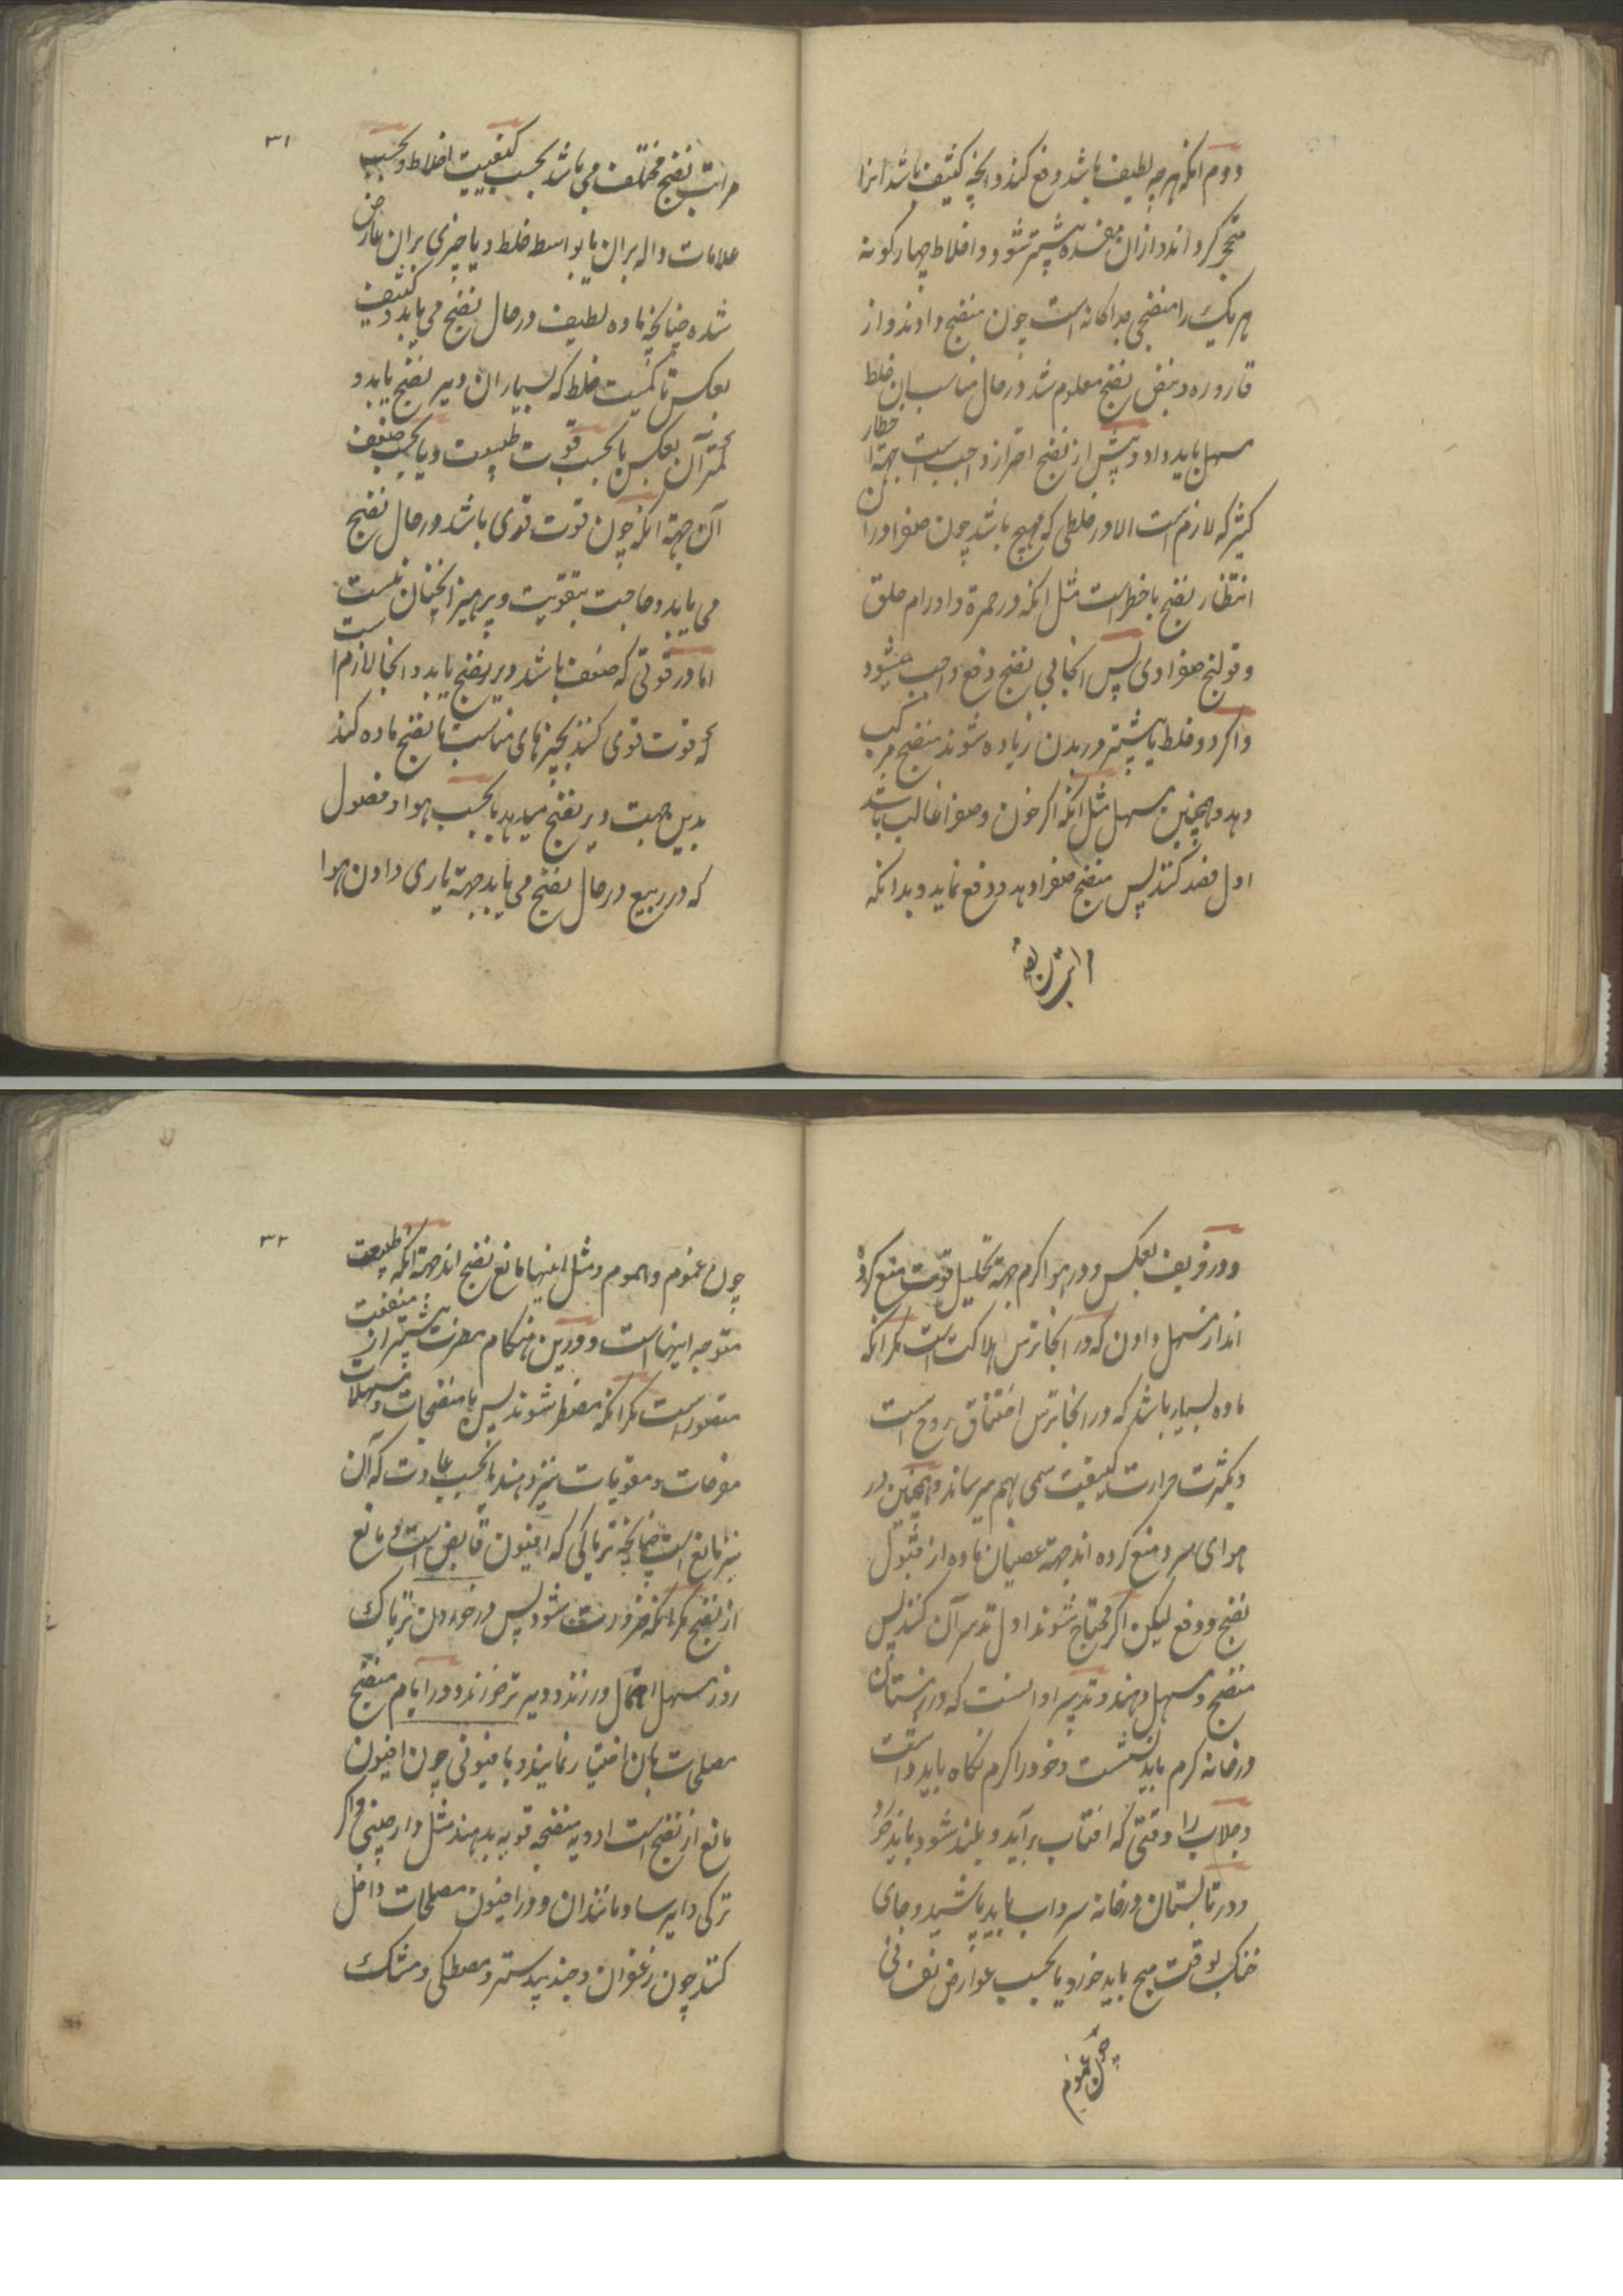 دوم انکه هرچه لطیف باشد دفع کند وانچه کثیف باشد انرا
متحجر کرداند و ازان مفسده بیشتر شود و اخلاط چهارکونه
هریک را منضجی جداکانه است چون منضج دادند و از
قاروره و نبض نضج معلوم شد در حال مناسب ان خلط
مسهل باید داد و پیش از نضج احتراز واجب است جهة اخطار
کثیر که لازم است الا در خلطی که مهیج باشد چون صفرا او را
انتظار نضج باخطر است مثل انکه در حمرة و اورام حلق
و قولنج صفراوی پس انجا بی نضج دفع واجب میشود
و اکر دو خلط یا بیشتر در بدن زیاده شوند منضج مرکب
دهد و همچنین مسهل مثل انکه اکر خون و صفرا غالب باشد
اول فصد کنند پس منضج صفرا دهد و دفع نماید و بدانکه
مراتب نضج
۳۱
مراتب نضج مختلف می باشد بحسب کیفیت اخلاط و بحسب
علامات داله بران یا بواسط خلط و یا چیزی بران عارض
شده چنانچه ماده لطیف در حال نضج می یابد و کثیف
بعکس تا کمیت خلط که بسیار ان دیر نضج یابد و
کمتر آن بعکس یا بحسب قوت طبیعت و یا بحسب ضعف
آن جهة انکه چون قوت قوی باشد در حال نضج
می یابد و حاجت بتقویت و پرهیز انچنان نیست
اما در قوتی که ضعف باشد دیر نضج یابد و انجا لازم است
که قوت قوی کنند بچیزهای مناسب تا نضج ماده کند
بدین جهت دیر نضج میدهد یا بحسب هوا و فصول
که در ربیع در حال نضج می یابد جهة یاری دادن هوا
و در خریف بعکس و در هوا کرم جهة تحلیل قوت منع کرده
اند از مسهل دادن که در انجا ترس هلاکت است مکر انکه
ماده بسیار باشد که در انجا ترس اختناق روح است
و بکثرت حرارت کیفیت سمی بهم میرساند و همچنین در
هوای سرد منع کرده اند جهة عصیان ماده از قبول
نضج و دفع لیکن اکر محتاج شوند اول تدبیر آن کنند پس
منضج و مسهل دهند و تدبیر او انست که در زمستان
در خانه کرم باید نشست و خود را کرم نکاه باید داشت
و جلاب را وقتی که افتاب برآید و بلند شود باید خورد
و در تابستان در خانه سرداب باید باشید و جای
خنک بوقت صبح باید خورد یا بحسب عوارض نفسانی
چون غموم
۳۲
چون غموم و هموم و مثل اینها مانع نضج اند جهة انکه طبیعت
متوجه اینها است و درین هنکام مضرت بیشتر از منفعت
متصور است مکر انکه مضطر شوند پس با منضجات و مسهلات
مفرحات و مقویات نیز دهند یا بحسب عادت که آن
نیز مانع است چنانچه تریاکی که افیون قابض است و مانع
از نضج مکر انکه ضرورت شود پس در خوردن تریاک
روز مسهل اهمال ورزند و دیر تر خورند و در ایام منضج
مصلحات بان اختیار نمایند و یا فیونی چون افیون
مانع از نضج است ادویه منضجه قویه بدهند مثل دارچینی و اکر
ترکی و ایرسا و مانند ان و در افیون مصلحات داخل
کنند چون زعفران و جند بیدستر و مصطکی و مشک